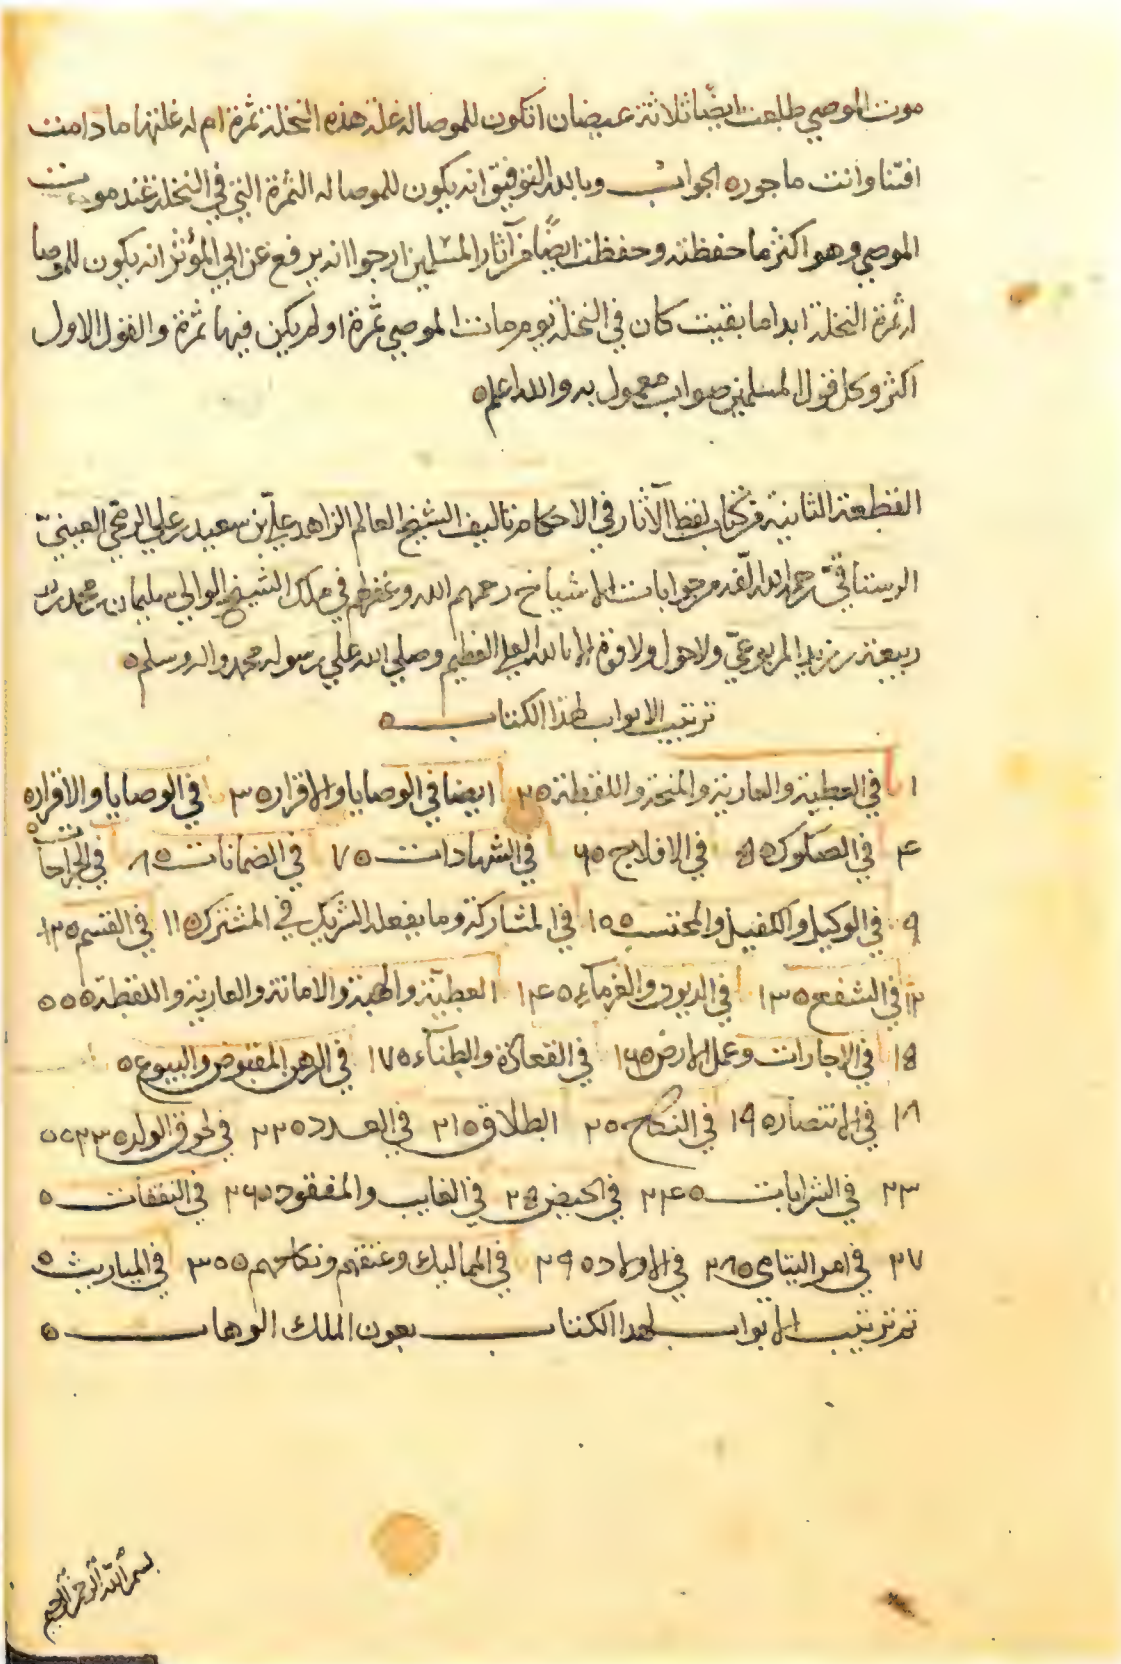 موت الموصي طلعت ايضًا ثلاثة عيضان اتكون للموصا له غلة هذه النخلة ثمرة ام له غلتها ما دامت
افتنا وانت ماجور ه الجواب وبالله التوفيق انه يكون للموصا له الثمرة التي في النخلة عند موت
الموصي وهو اكثر ما حفظته وحفظت ايضًا من آثار المسلمين ارجوا انه يرفع عن ابي المؤثر انه يكون للموصا
له ثمرة النخلة ابدا ما بقيت كان في النخلة يوم مات الموصي ثمرة او لم يكن فيها ثمرة والقول الاول
اكثر وكل قول المسلمين صواب معمول به والله اعلم ه
القطعة الثانية من كتاب لقط الآثار في الاحكام تاليف الشيخ العالم الزاهد علي بن سعيد بن علي الرمحي العيني
الرستاقي رحمه الله الفه من جوابات الاشياخ رحمهم الله وغفر لهم في ملك الشيخ الوالي سليمان بن محمد بن
ربيعة بن زيد المربوعي ولا حول ولا قوة الا بالله العلي العظيم وصلي الله علي رسوله محمد واله وسلم ه
ترتيب الابواب لهذا الكتاب ه
١ في العطية والعارية والمنحة واللقطة ه ٢ ايضا في الوصايا والاقرار ه ٣ في الوصايا والاقرار ه
٤ في الصكوك ه ٥ في الافلاج ه ٦ في الشهادات ه ٧ في الضمانات ه ٨ في الجراحات ه
٩ في الوكيل والكفيل والمحتسب ه ١٠ في المشاركة وما يفعله الشريك في المشترك ه ١١ في القسم ه ١٢
١٢ في الشفع ه ١٣ في الديون والغرماء ه ١٤ العطية والهبة والامانة والعارية واللقطة ه ه ه
١٥ في الاجارات وعمل الارض ه ١٦ في القعادة والطناء ه ١٧ في الرهن المقبوض والبيوع ه
١٨ في الانتصار ه ١٩ في النكاح ه ٢٠ الطلاق ه ٢١ في العدد ه ٢٢ في لحوق الولد ه ٢٣ ه ه
٢٣ في الشرايات ه ٢٤ في الحيض ٢٥ في الغايب والمفقود ه ٢٦ في النفقات ه
٢٧ في امر اليتامي ه ٢٨ في الاولاد ه ٢٩ في المماليك وعتقهم ونكاحهم ه ٣٠ في المياريث ه
تم ترتيب الابواب لهذا الكتاب بعون الملك الوهاب ه
بسم الله الرحمن الرحيم